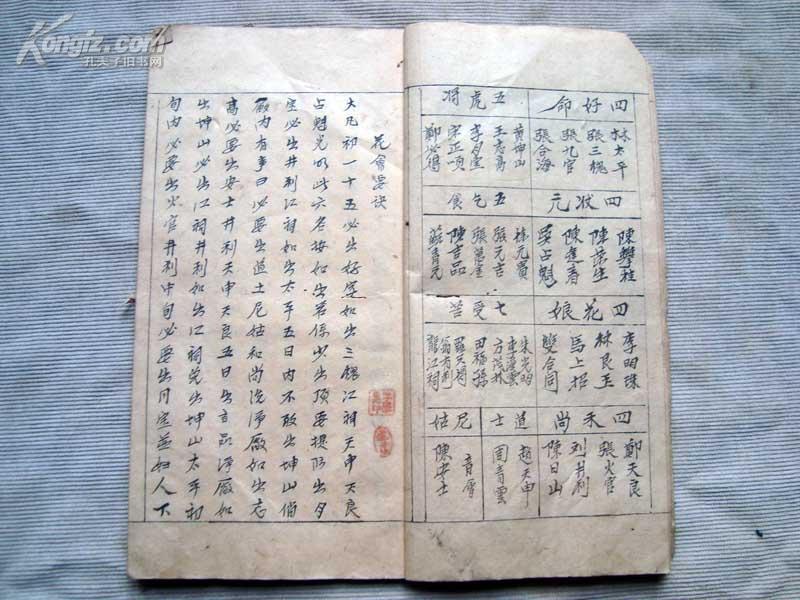 Kongfz.com
孔夫子旧书网
四好命
林太平
張三槐
張九官
張合海
五虎將
黃坤山
王志高
李月宝
宋正順
鄭必得
四狀元
陳攀桂
陳荣生
陳逢春
吳占魁
五乞食
林元貴
張元吉
張萬金
陳吉品
蘇青元
四花娘
李明珠
林良玉
馬上招
雙合同
七受苦
朱光明
李漢雲
方茂林
田福孫
羅只得
翁有利
龍江祠
四禾尚
鄭天良
張火官
刘井利
陳日山
道士
趙天申
周青雲
尼姑
音會
陳安士
花會要訣
大凡初一十五必出好字如出三槐江祠天申天良
占魁光明此六名按如出若係少出頂要提防出月
宝必出井利江祠如出太平五日内不敢出坤山倘
廠内有事日必要出道士尼姑和尚洗淨廠如出志
高必要出安士井利天申天良五日出吉品淨廠如
出坤山必出江祠井利如出江祠先出坤山太平初
旬内必要出火官井利中旬必要出月宝並婦人下